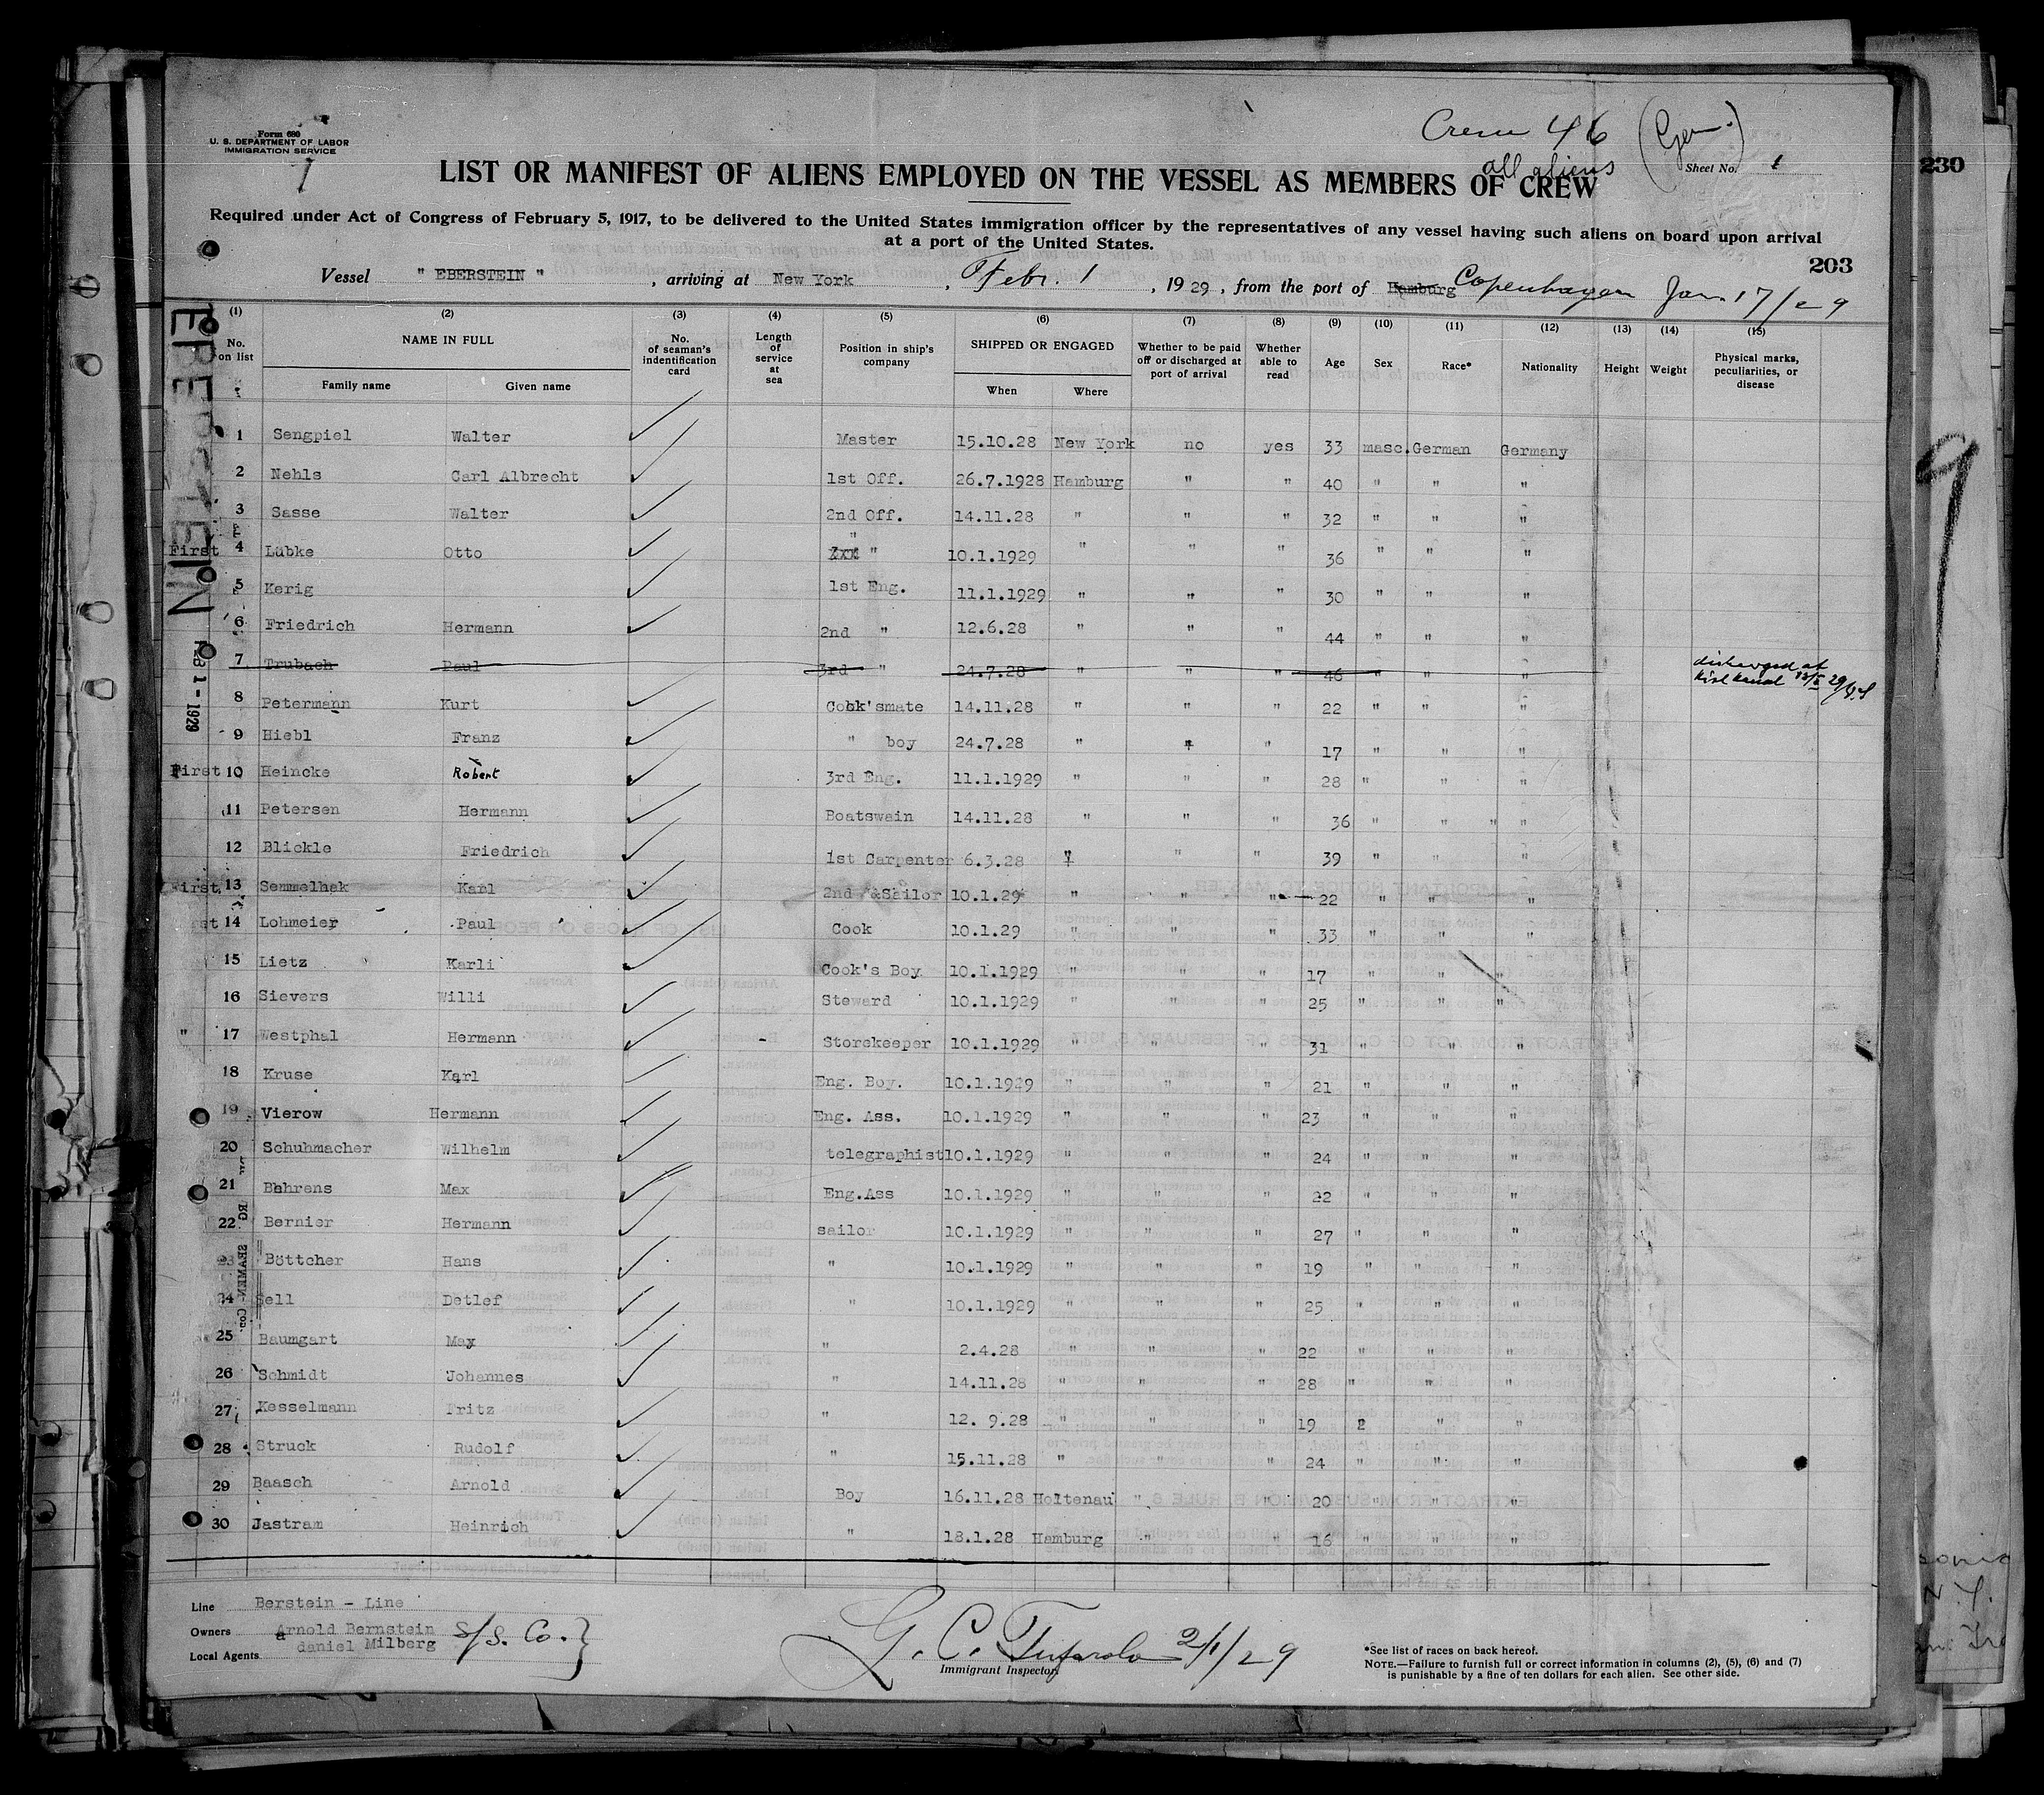 Crew 46 (Ger.)
all aliens
Form 680
U. S. DEPARTMENT OF LABOR
IMMIGRATION SERVICE
LIST OR MANIFEST OF ALIENS EMPLOYED ON THE VESSEL AS MEMBERS OF CREW
Sheet No. 1
230
Required under Act of Congress of February 5, 1917, to be delivered to the United States immigration officer by the representatives of any vessel having such aliens on board upon arrival
at a port of the United States.
203
Vessel " EBERSTEIN " , arriving at New York , Febr. 1 , 1929 , from the port of Hamburg Copenhagen Jan. 17/29
(1) (2) (3) (4) (5) (6) (7) (8) (9) (10) (11) (12) (13) (14) (15)
No. on list NAME IN FULL Family name Given name No. of seaman's indentification card Length of service at sea Position in ship's company SHIPPED OR ENGAGED When Where Whether to be paid off or discharged at port of arrival Whether able to read Age Sex Race* Nationality Height Weight Physical marks, peculiarities, or disease
EBERSTEIN
FEB 1 - 1929
1 Sengpiel Walter Master 15.10.28 New York no yes 33 masc. German Germany
2 Nehls Carl Albrecht 1st Off. 26.7.1928 Hamburg " " 40 " " "
3 Sasse Walter 2nd Off. 14.11.28 " " " 32 " " "
First 4 Lübke Otto " " 10.1.1929 " " " 36 " " "
5 Kerig 1st Eng. 11.1.1929 " " " 30 " " "
6 Friedrich Hermann 2nd " 12.6.28 " " " 44 " " "
7 Trubach Paul 3rd " 24.7.28 " " " 46 " " " discharged at Kiel Kanal
8 Petermann Kurt Cook'smate 14.11.28 " " " 22 " " "
9 Hiebl Franz " boy 24.7.28 " " " 17 " " "
First 10 Heincke Robert 3rd Eng. 11.1.1929 " " " 28 " " "
11 Petersen Hermann Boatswain 14.11.28 " " " 36 " " " "
12 Blickle Friedrich 1st Carpenter 6.3.28 " " " 39 " " "
First 13 Semmelhak Karl 2nd "&Sailor 10.1.29 " " " 22 " " "
st 14 Lohmeier Paul Cook 10.1.29 " " " 33 " " "
15 Lietz Karli Cook's Boy 10.1.1929 " " " 17 " " "
16 Sievers Willi Steward 10.1.1929 " " " 25 " " "
" 17 Westphal Hermann Storekeeper 10.1.1929 " " " 31 " " "
18 Kruse Karl Eng. Boy. 10.1.1929 " " " 21 " " "
19 Vierow Hermann Eng. Ass. 10.1.1929 " " " 23 " " "
20 Schuhmacher Wilhelm telegraphist 10.1.1929 " " " 24 " " "
21 Behrens Max Eng.Ass 10.1.1929 " " " 22 " " "
22 Bernier Hermann sailor 10.1.1929 " " " 27 " " "
23 Böttcher Hans " 10.1.1929 " " " 19 " " "
24 Sell Detlef " 10.1.1929 " " " 25 " " "
25 Baumgart Max " 2.4.28 " " " 22 " " "
26 Schmidt Johannes " 14.11.28 " " " 28 " " "
27 Kesselmann Fritz " 12. 9.28 " " " 19 " " "
28 Struck Rudolf " 15.11.28 " " " 24 " " "
29 Baasch Arnold Boy 16.11.28 Holtenau " " 20 " " "
30 Jastram Heinrich " 18.1.28 Hamburg " " 16 " " "
Line Berstein - Line
Owners Arnold Bernstein S/S. Co. }
Local Agents daniel Milberg
2/1/29
Immigrant Inspector.
*See list of races on back hereof.
NOTE.—Failure to furnish full or correct information in columns (2), (5), (6) and (7)
is punishable by a fine of ten dollars for each alien. See other side.